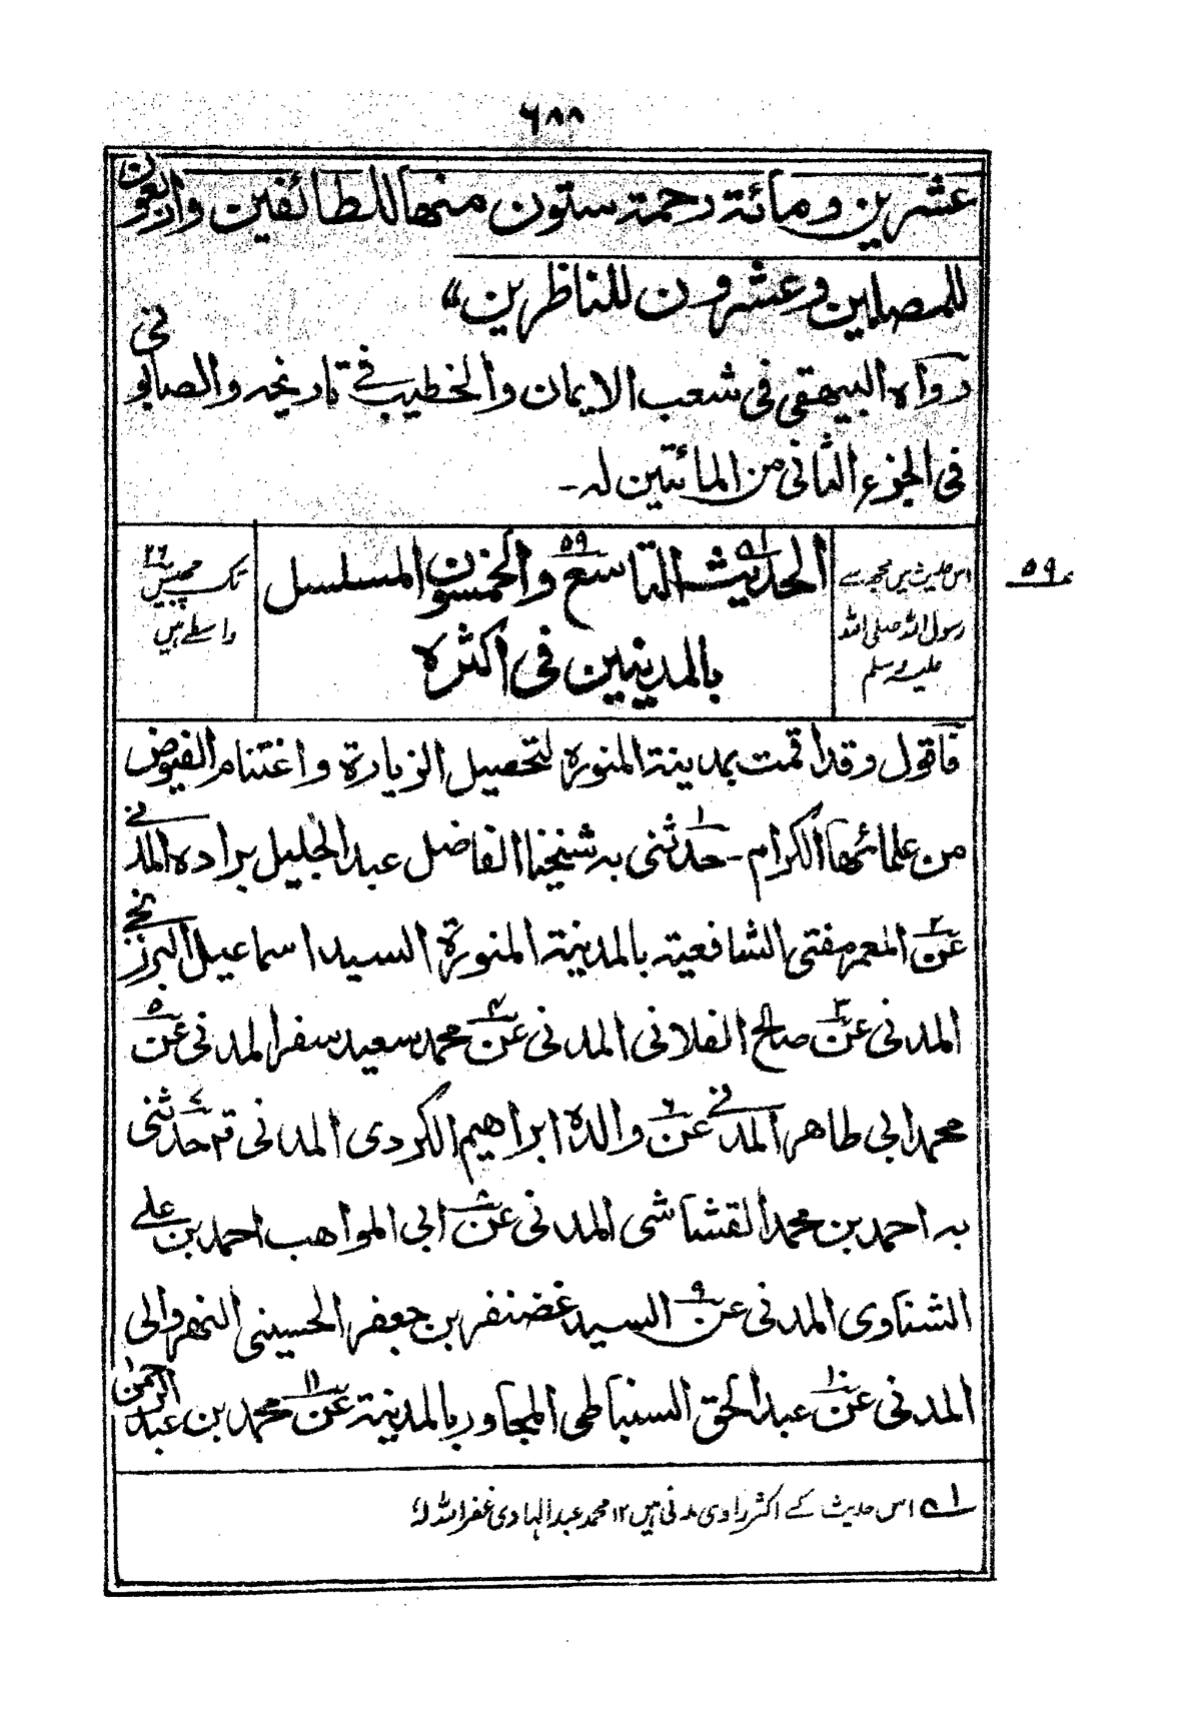 ٦٨٨
عشرين ومائة رحمة ستون منها للطائفين واربعون
للمصلين وعشرون للناظرين"
رواه البيهقي في شعب الايمان والخطيب في تاريخه والصابونى
فى الجزء الثانى من المائتين له۔
اس حدیث میں مجھ سے
رسول اللہ صلی اللہ
علیہ وسلم
الحديث التاسع والخمسون المسلسل ٥٩ ١ے
بالمدينين فى اكثره
تک چھبیس ٢٦
واسطے ہیں
نمبر ٥٩
فاقول وقد اقمت بمدينة المنورة لتحصيل الزيارة واغتنام الفيوض
من علمائها الكرام۔ حدثنى ١ به شيخنا الفاضل عبد الجليل براده المدنى
عن ٢ المعمر مفتى الشافعية بالمدينة المنورة السيد اسماعيل البرزنجى
المدنى عن ٣ صالح الفلانى المدنى عن ٤ محمد سعيد سفر المدنى عن ٥
محمد ابى طاهر المدنى عن ٦ والده ابراهيم الكردى المدنى قال حدثنى ٧
به احمد بن محمد القشاشى المدنى عن ٨ ابى المواهب احمد بن على
الشناوى المدنى عن ٩ السيد غضنفر بن جعفر الحسينى النهروالى
المدنى عن ١٠ عبد الحق السنباطى المجاور بالمدينة عن ١١ محمد بن عبد الرحمن
١ے اس حدیث کے اکثر راوی مدنی ہیں ١٢ محمد عبد الہادی غفر اللہ لہٗ